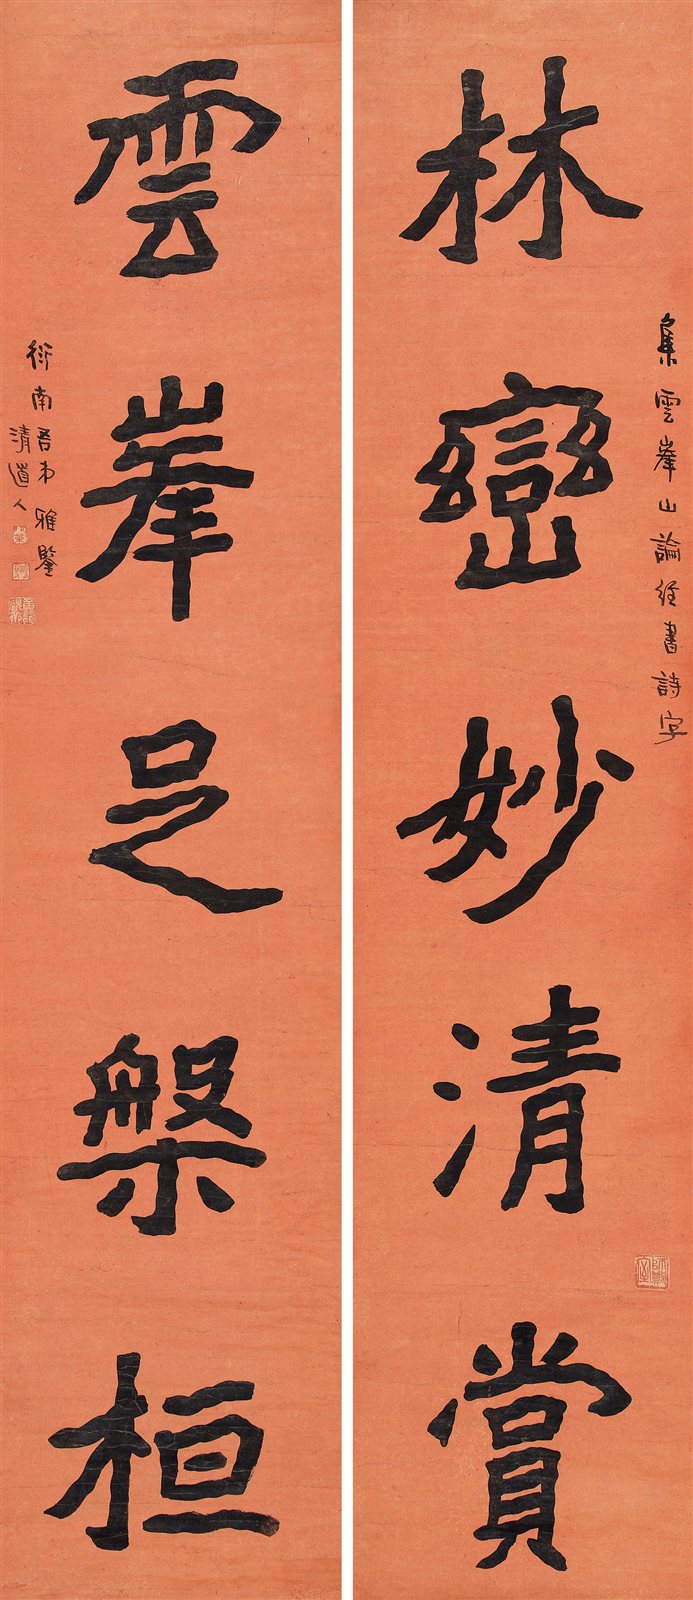 集雲峯山論經書詩字
林巒妙清賞
雲峯足槃桓
衍南吾弟雅鑒
清道人